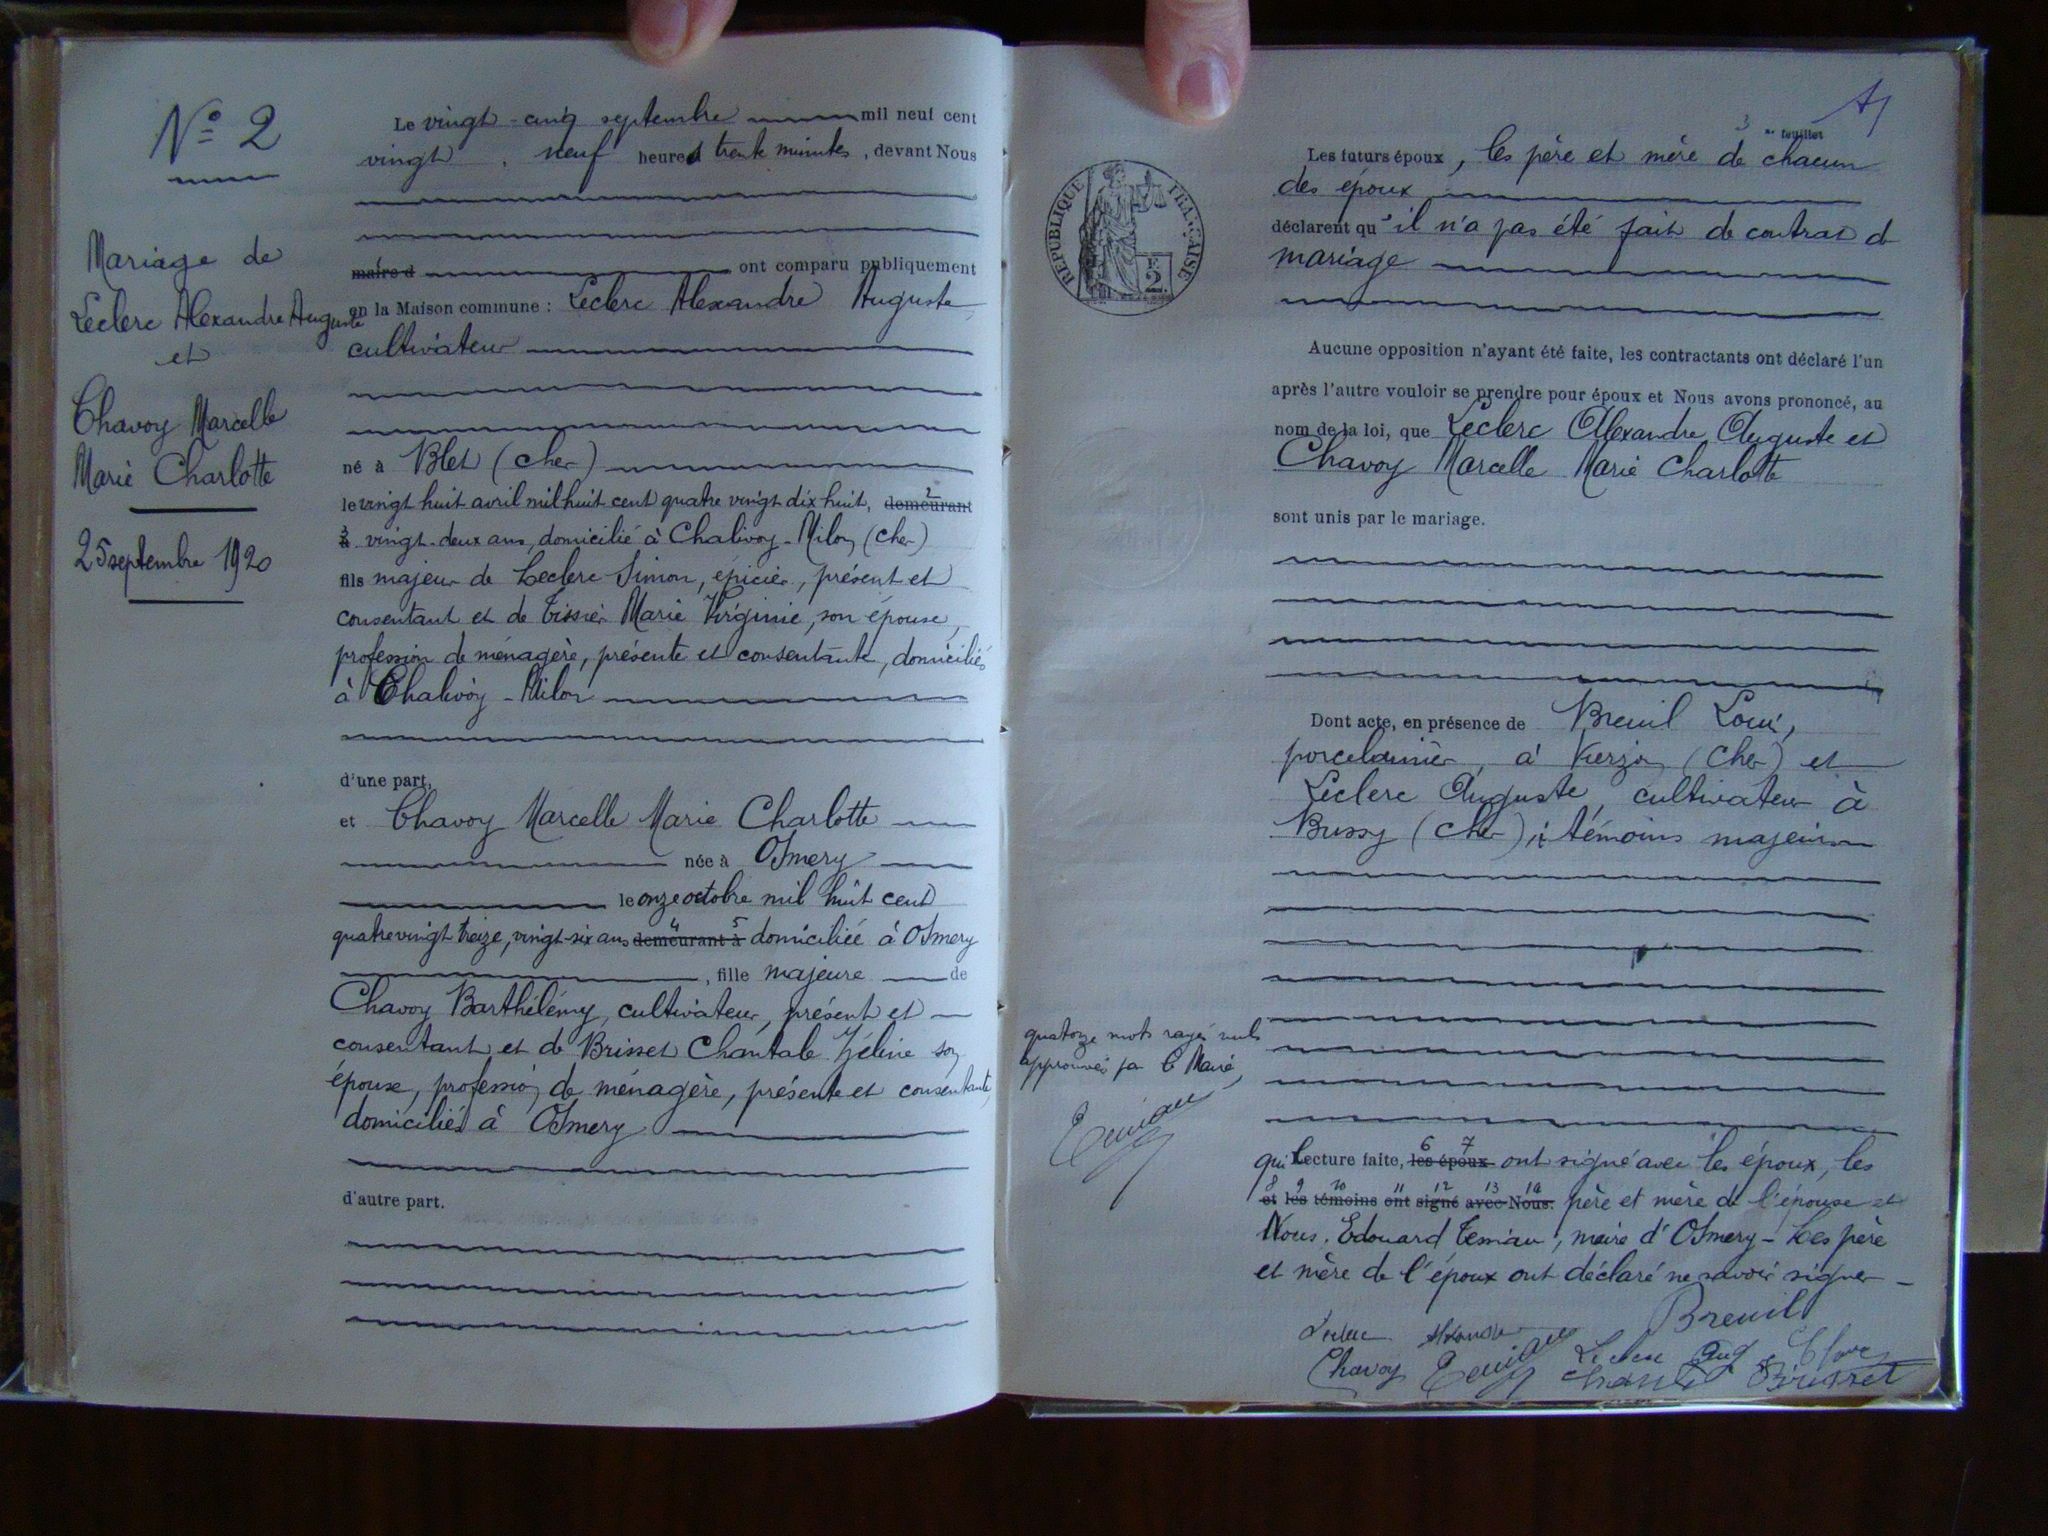 N° 2
Mariage de
Leclerc Alexandre Auguste
et
Chavoy Marcelle
Marie Charlotte
25 septembre 1920
Le vingt-cinq septembre mil neuf cent
vingt, neuf heures trente minutes, devant Nous
maire d ont comparu publiquement
en la Maison commune : Leclerc Alexandre Auguste,
cultivateur
né à Blet (Cher)
le vingt huit avril mil huit cent quatre vingt dix huit, demeurant
à vingt-deux ans, domicilié à Chalivoy-Milon (Cher)
fils majeur de Leclerc Simon, épicier, présent et
consentant et de Tissier Marie Virginie, son épouse,
profession de ménagère, présente et consentante, domiciliés
à Chalivoy-Milon
d'une part,
et Chavoy Marcelle Marie Charlotte
née à Osmery
le onze octobre mil huit cent
quatre vingt treize, vingt-six ans demeurant à domiciliée à Osmery
, fille majeure de
Chavoy Barthélémy, cultivateur, présent et
consentant et de Brisset Chantale Zéline son
épouse, profession de ménagère, présente et consentante,
domiciliés à Osmery
d'autre part.
3 e feuillet
RÉPUBLIQUE FRANÇAISE
2
Les futurs époux, les père et mère de chacun
des époux
déclarent qu'il n'a pas été fait de contrat de
mariage
Aucune opposition n'ayant été faite, les contractants ont déclaré l'un
après l'autre vouloir se prendre pour époux et Nous avons prononcé, au
nom de la loi, que Leclerc Alexandre Auguste et
Chavoy Marcelle Marie Charlotte
sont unis par le mariage.
Dont acte, en présence de Breuil Louis,
porcelainier, à Vierzon (Cher) et
Leclerc Auguste, cultivateur à
Bussy (Cher), témoins majeurs
quatorze mots rayés nuls
approuvés par le Maire,
qui Lecture faite, les époux ont signé avec les époux, les
6 7
8 9 10 11 12 13 14
et les témoins ont signé avec Nous. père et mère de l'épouse et
Nous, Edouard Temiau, maire d'Osmery - Les père
et mère de l'époux ont déclaré ne savoir signer -
Breuil
Leclerc Alexandre
Chavoy
Brisset